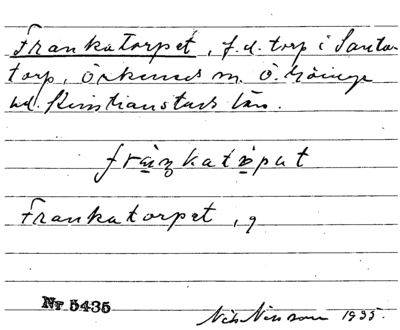 Frankatorpet, f.d. torp i Santa-
torp, Örkeneds sn. Ö. Göinge
hd. Kristianstads län.
fràŋkatɒ̀pət
Frankatorpet, g
Nr 5435
Nils Nilsson 1935.